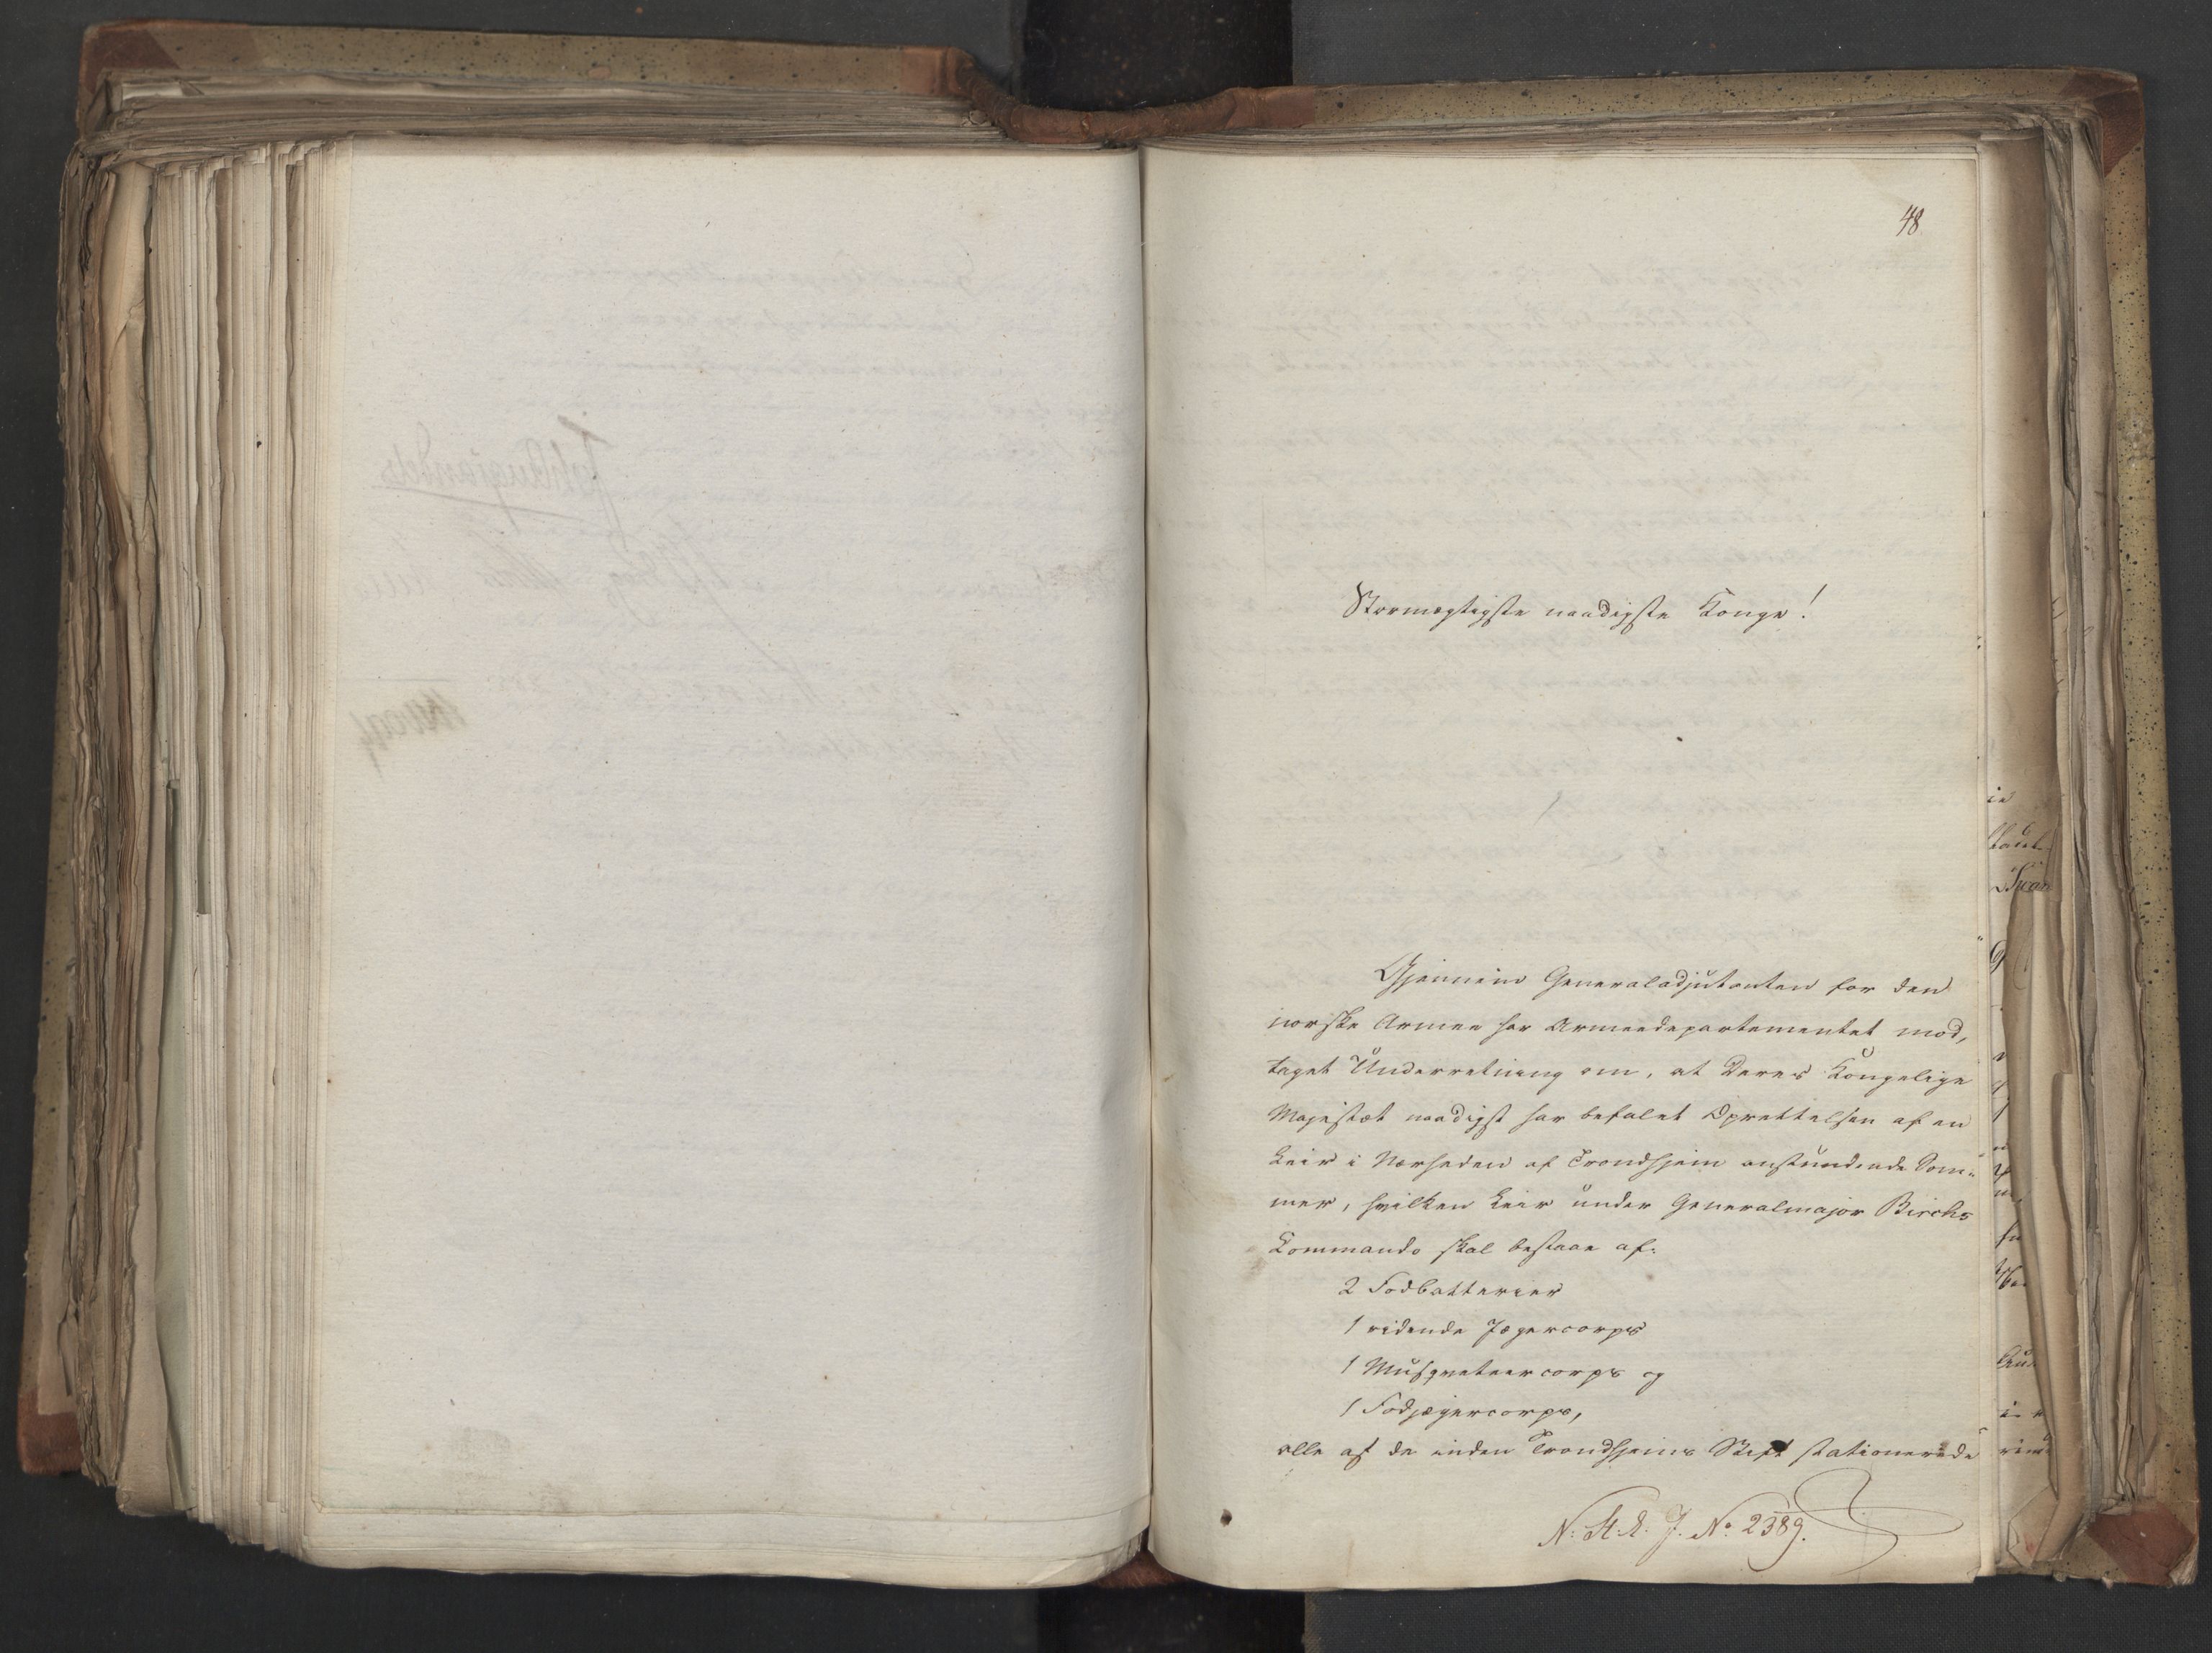 48
Stormægtigste naadigste Konge!
Gjennem Generaladjutanten for den
norske Armee har Armeedepartementet mod,
taget Underretning om, at Deres Kongelige
Majestæt naadigst har befalet Oprettelsen af en
Leir i Nærheden af Trondhjem anstundende Som-
mer, hvilken Leir under Generalmajor Birchs
Kommando skal bestaae af:
2 Fodbatterier
1 ridende Jægercorps
1 Musqueteercorps og
1 Fodjægercorps,
alle af de inden Trondhjems Stift stationerede
N: St. S: J. No. 2389.